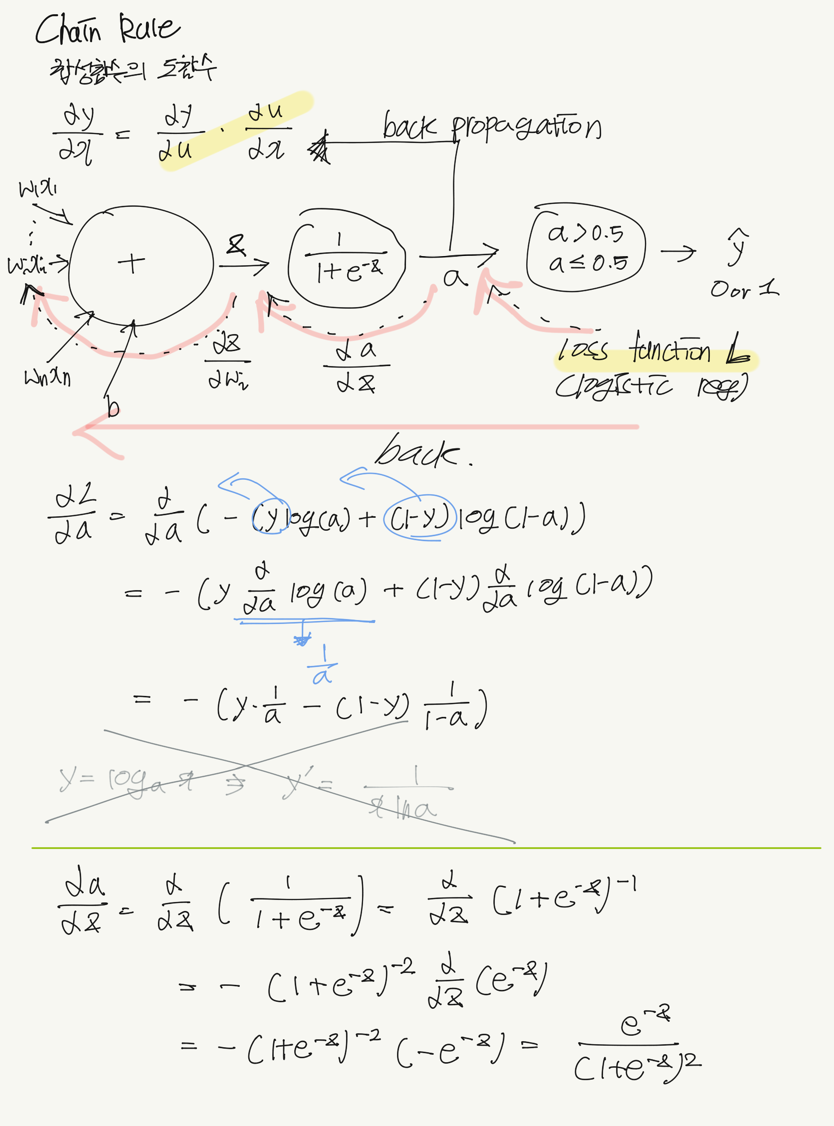 Chain Rule
합성함수의 도함수
dy/dx = dy/du · du/dx
back propagation
w₁x₁
w₂x₂
wₙxₙ
b
+
z
1/(1+e^-z)
a
a > 0.5
a ≤ 0.5
ŷ
0 or 1
dz/dw₂
da/dz
loss function L
(logistic reg)
back.
dL/da = d/da (-(y log(a) + (1-y) log(1-a))
= -(y d/da log(a) + (1-y) d/da log(1-a))
1/a
= -(y·1/a - (1-y) 1/(1-a))
y = logₐ x ⇒ y' = 1/(x ln a)
da/dz = d/dz (1/(1+e^-z)) = d/dz (1+e^-z)^-1
= -(1+e^-z)^-2 d/dz (e^-z)
= -(1+e^-z)^-2 (-e^-z) = e^-z/(1+e^-z)^2